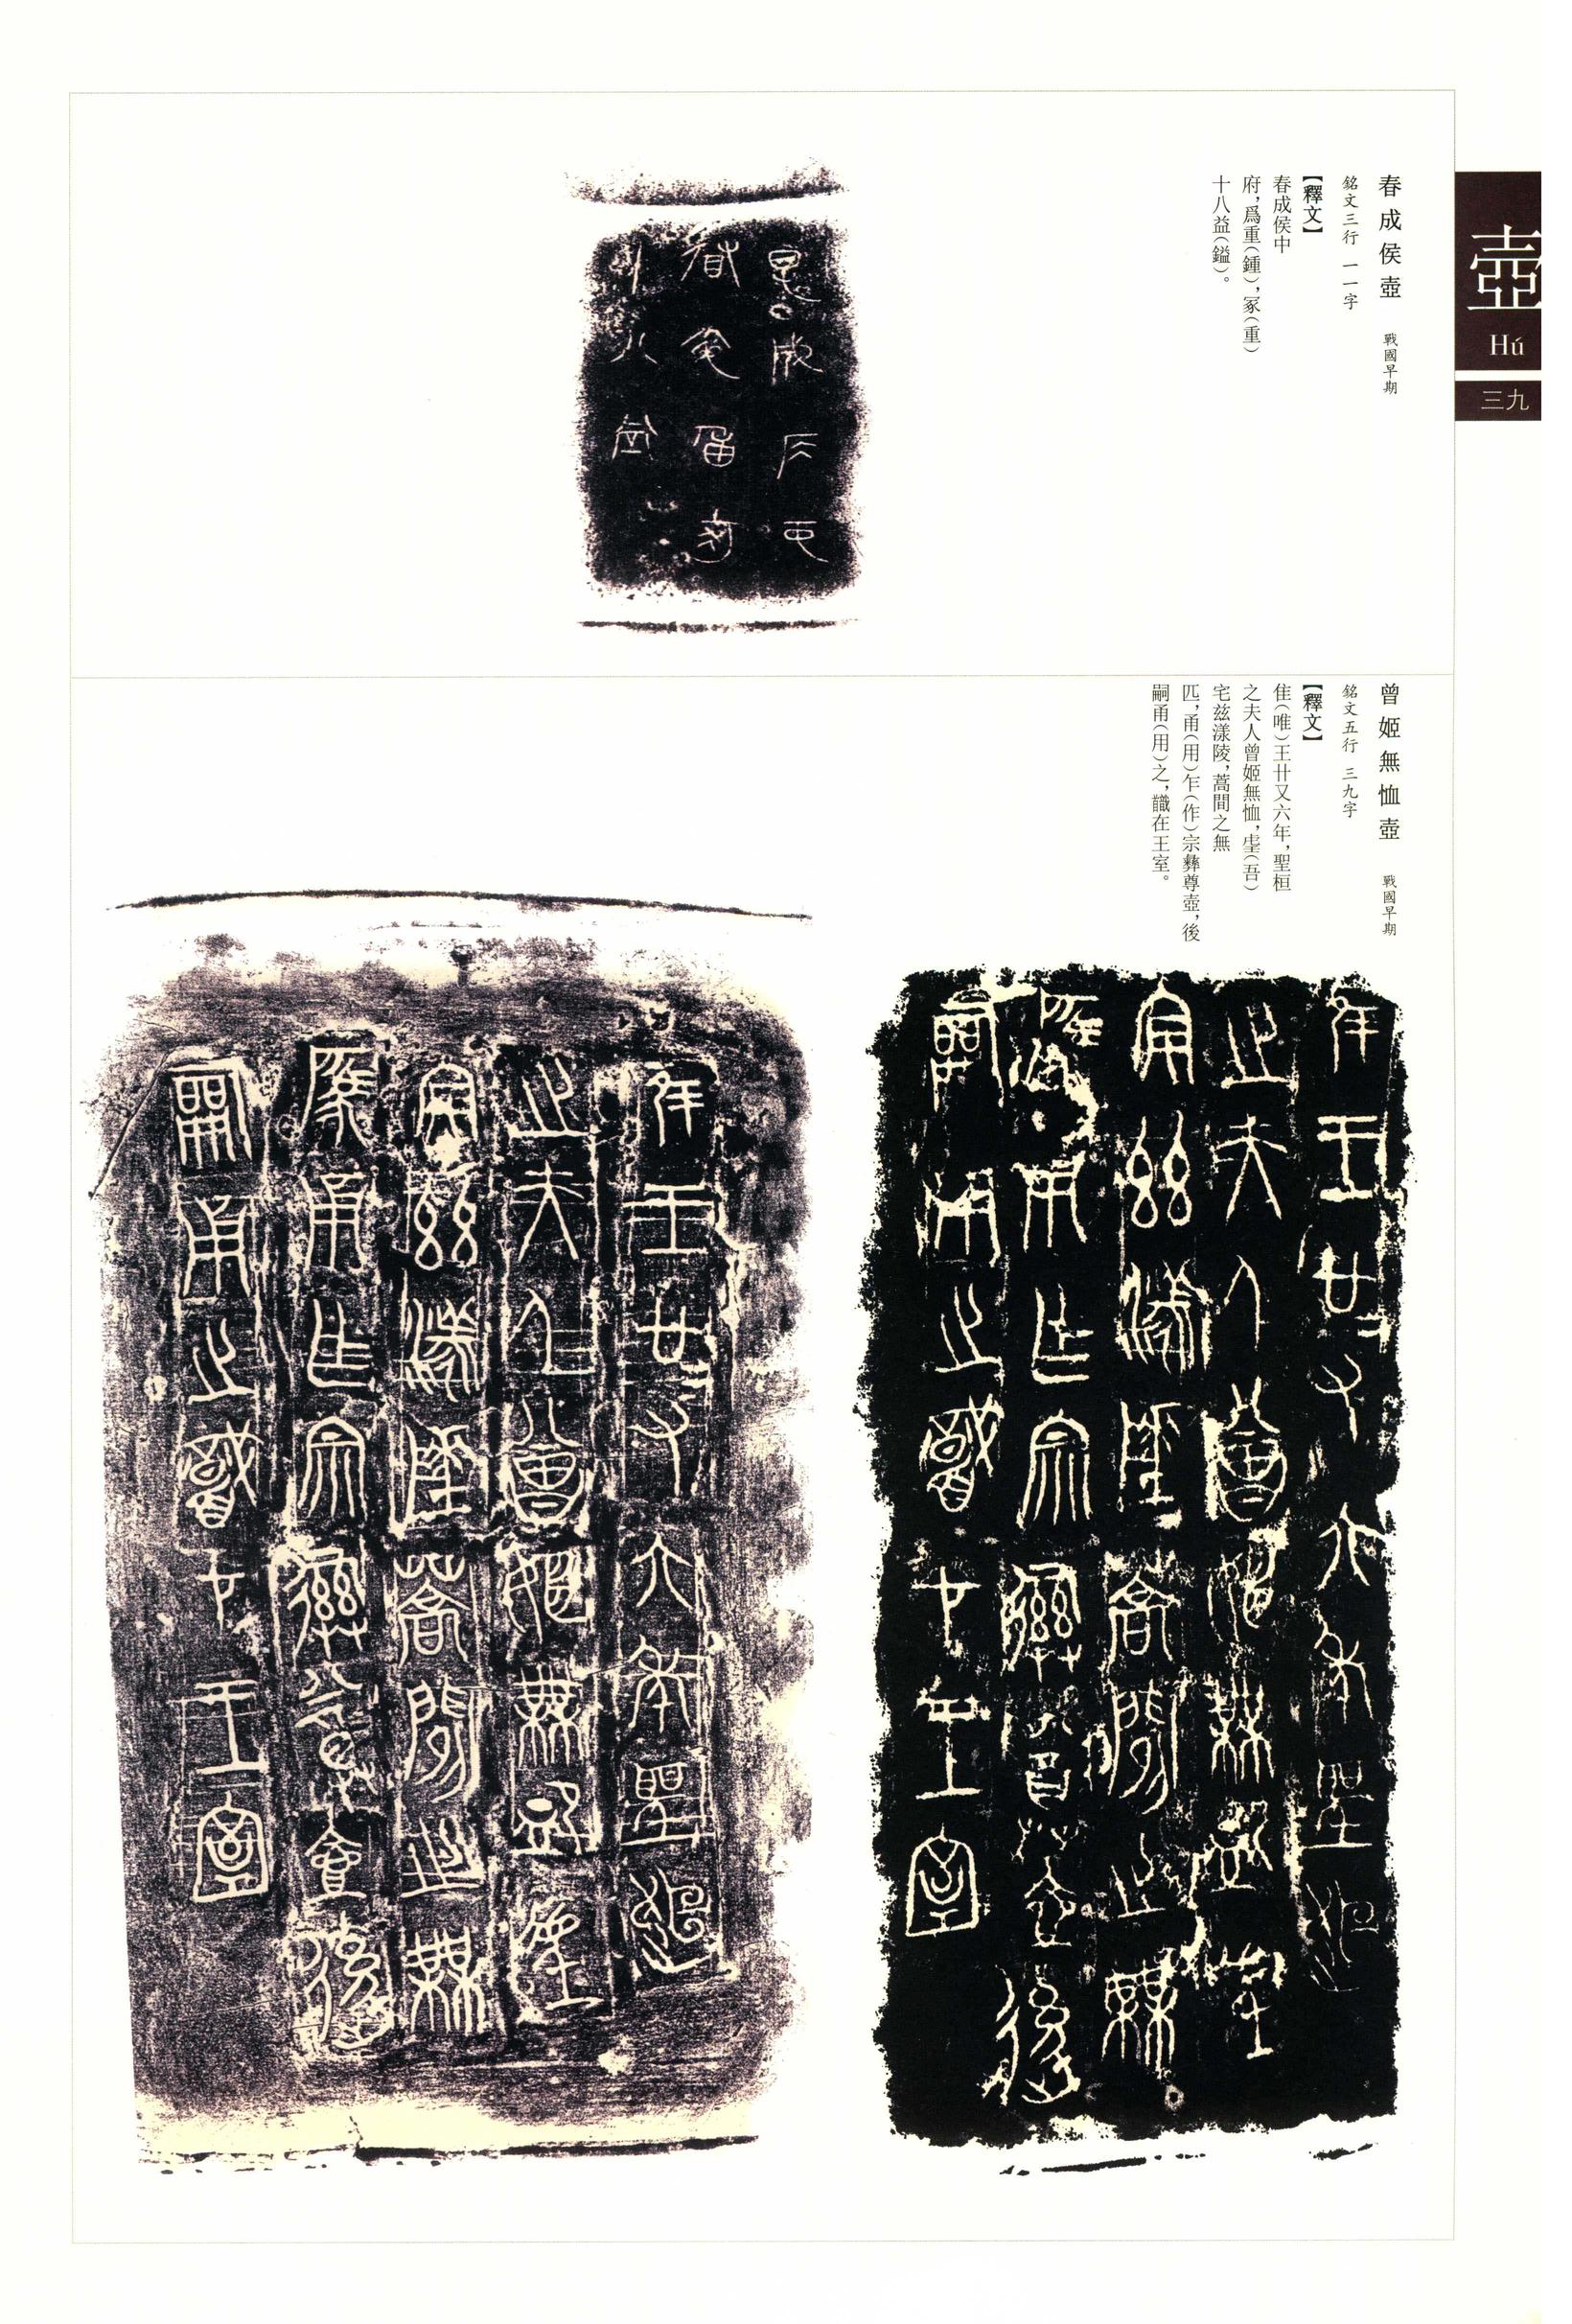 壺
Hú
三九
春成侯壺 戰國早期
銘文三行 一一字
【釋文】
春成侯中
府，爲重（鍾），冢（重）
十八益（鎰）。
曾姬無恤壺 戰國早期
銘文五行 三九字
【釋文】
隹（唯）王廿又六年，聖桓
之夫人曾姬無恤，虗（吾）
宅兹漾陵，蒿間之無
匹，甬（用）乍（作）宗彝尊壺，後
嗣甬（用）之，職在王室。